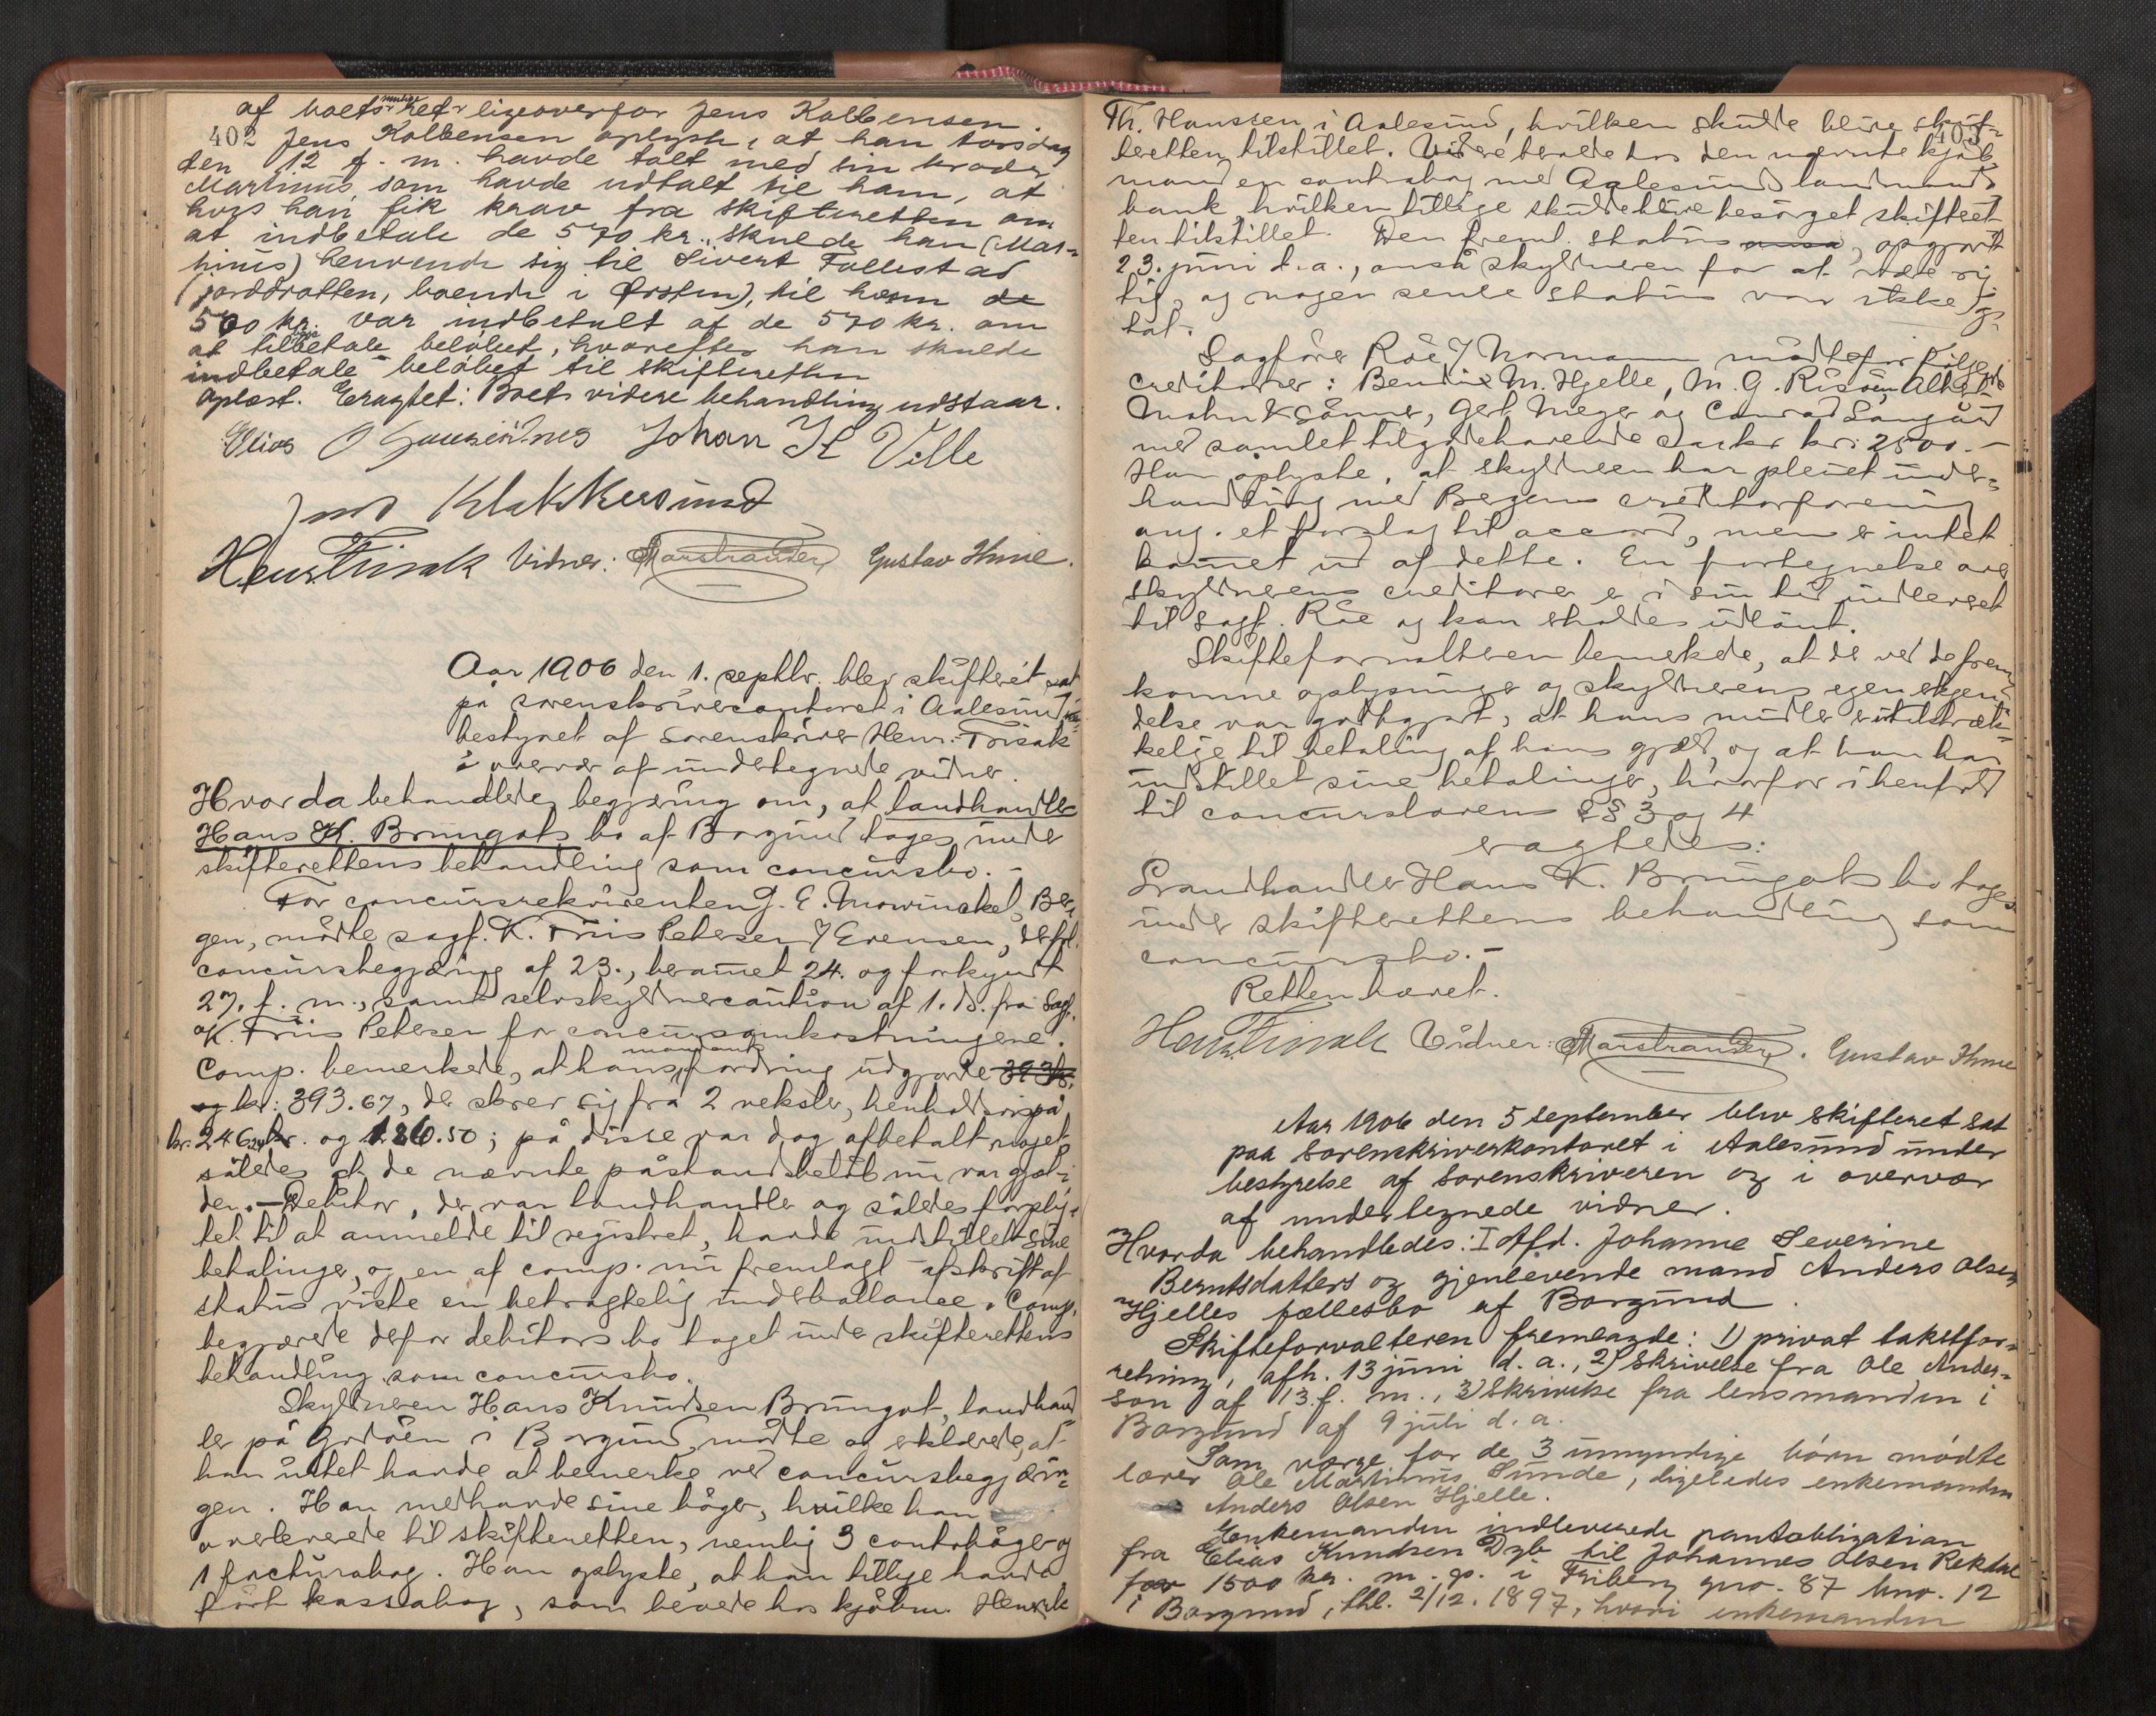 af boets mulige ret ligeoverfor Jens Kolbensen.
402 Jens Kolbensen oplyste, at han torsdag
den 12 f. m. havde talt med sin broder
Martinus som havde udtalt til ham, at
hvis han fik krav fra skifteretten om
at indbetale de 570 kr., skulde han (Mar-
tinus) henvende sig til Sivert Follestad
(jorddrotten, boende i Ørsten), til hvem de
500 kr. var indbetalt af de 570 kr. om
at tilbetale beløbet, hvorefter han skulde
indbetale beløbet til skifteretten
Oplæst. Eragtet: Boets videre behandling udstaar.
Elias Johan K Ville
Klokkersund
Henr. Finsak Vidner: Marstrander Gustav Ihme.
Aar 1906 den 1. septbr. blev skifteret sat
på sorenskrivercontoret i Aalesund
bestyret af sorenskriver Henr. Finsak
i overvær af undertegnede vidner.
Hvor da behandledes begjæring om, at landhandler
Hans K. Brungots bo af Borgund tages under
skifterettens behandling som concursbo. –
For concursrekvirenten J. E. Mowinckel, Ber-
gen, mødte sagf. K. Friis Petersen / Evensen, der frl.
concursbegjæring af 23., beramet 24. og forkyndt
27. f. m., samt selvskyldnercaution af 1. ds. fra sagf.
K. Friis Petersen for concursomkostningene.
Comp. bemerkede, at hans mandants fordring udgjorde 393 kr.
og kr: 393.67, der skrev sig fra 2 veksler, henholdsvis på
kr. 246 og 186.50; på disse var dog afbetalt noget
således at de nævnte påstandsbeløb nu var gjæl-
den. – Debitor, der var landhandler og således forplig-
tet til at anmelde til registret, havde indstillet sine
betalinger, og en af comp. nu fremlagt afskrift af
status viste en betragtelig underballance. Comp.
begjærede derfor debitors bo taget under skifterettens
behandling som concursbo.
Skyldneren Hans Knudsen Brungot, landhand-
ler på Godøen i Borgund, mødte og erklærede, at
han intet havde at bemerke ved concursbegjærin-
gen. Han medhavde sine bøger, hvilke han
overleverede til skifteretten, nemlig 3 contobøger og
1 facturabog. Han oplyste, at han tillige havde
ført kassabog, som beroede hos kjøbm. Henrik
403
Th. Hanssen i Aalesund, hvilken skulde blive skif-
teretten tilstillet. Videre beroede hos den nævnte kjøb-
mand en contrabog med Aalesunds landmands
bank, hvilken tillige skulde blive besørget skifteret-
ten tilstillet. Den freml. status ansa, opgjort
23. juni d. a., anså skyldneren for at være rig-
tig, og nogen senere status var ikke op-
tat.
Sagfører Råe / Normann mødte for følgende
creditorer: Bendix M. Hjelle, M. G. Risøen, Albert
Mohn & sønner, Gert Meyer og Conrad Langård
med samlet tilgodehavende stærkt kr: 2500. –
Han oplyste, at skyldneren har pleiet under-
handling med Bergens creditorforening
ang. et forslag til accord, men er intet
kommet ud af dette. En fortegnelse over
skyldnerens creditorer er i sin tid indleveret
til sagf. Råe og kan skaldes udlånt.
Skifteforvalteren bemerkede, at da ved de frem-
komne oplysninger og skyldnerens egen erkjen-
delse var godtgjort, at hans midler er utilstræk-
kelige til betaling af hans gjæld, og at han har
indstillet sine betalinger, hvorfor i henhold
til concurslovens §§ 3 og 4
eragtedes:
Landhandler Hans K. Brungots bo tages
under skifterettens behandling som
concursbo. –
Retten hævet.
Henr. Finsak Vidner: Marstrander. Gustav Ihme
Aar 1906 den 5 september blev skifteret sat
paa sorenskriverkontoret i Aalesund under
bestyrelse af sorenskriveren og i overvær
af undertegnede vidner.
Hvorda behandledes: I Afd. Johanne Severine
Berntsdatters og gjenlevende mand Anders Olsen
Hjelles fællesbo af Borgund.
Skifteforvalteren fremlagde: 1) privat takstfor-
retning, afh. 13 juni d. a., 2) Skrivelse fra Ole Ander-
son af 13. f. m., 3) Skrivelse fra lensmanden i
Borgund af 9 juli d. a.
Som værge for de 3 umyndige børn mødte
lærer Ole Martinus Sunde, ligeledes enkemanden
Anders Olsen Hjelle.
Enkemanden indleverede pantobligation
fra Elias Knudsen Dyb til Johannes Olsen Rekdal
for 1500 kr. m. p. i Friberg gno. 87 bno. 12
i Borgund, thl. 2/12. 1897, hvori enkemanden